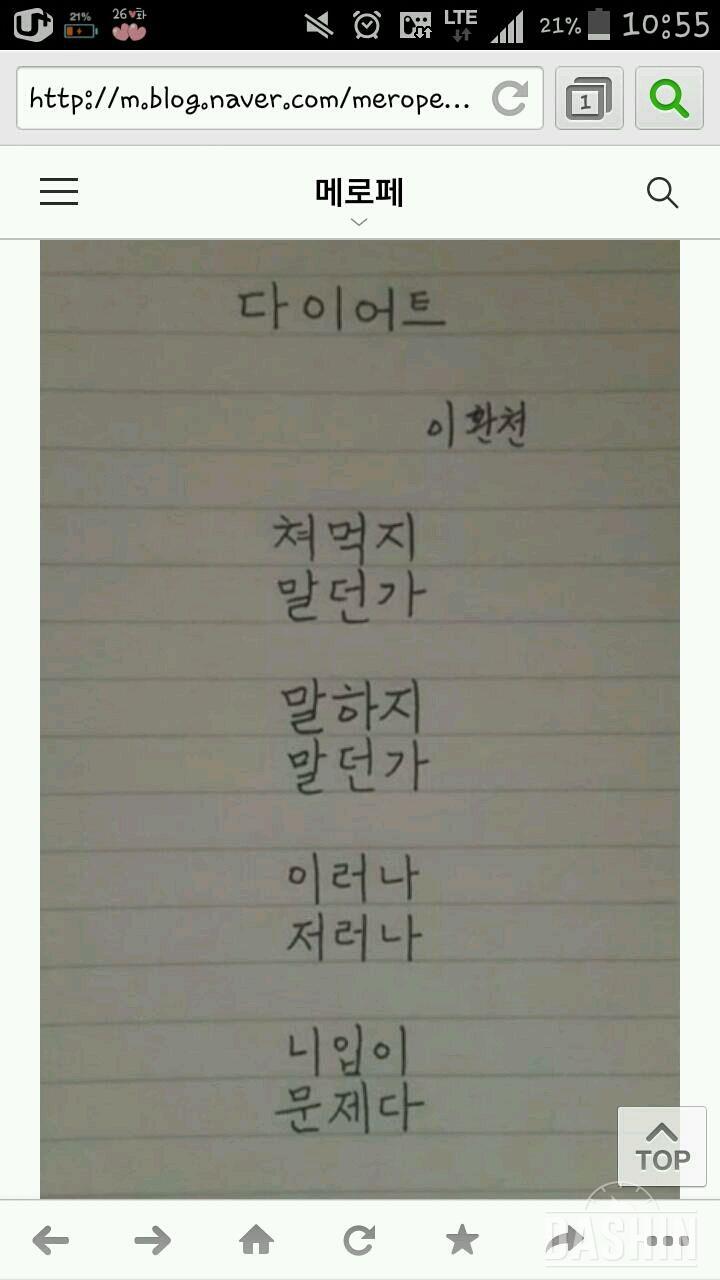 U+
21%
26♥화
LTE
21%
10:55
http://m.blog.naver.com/merope...
1
메로페
다이어트
이환천
쳐먹지
말던가
말하지
말던가
이러나
저러나
니입이
문제다
TOP
DASHIN